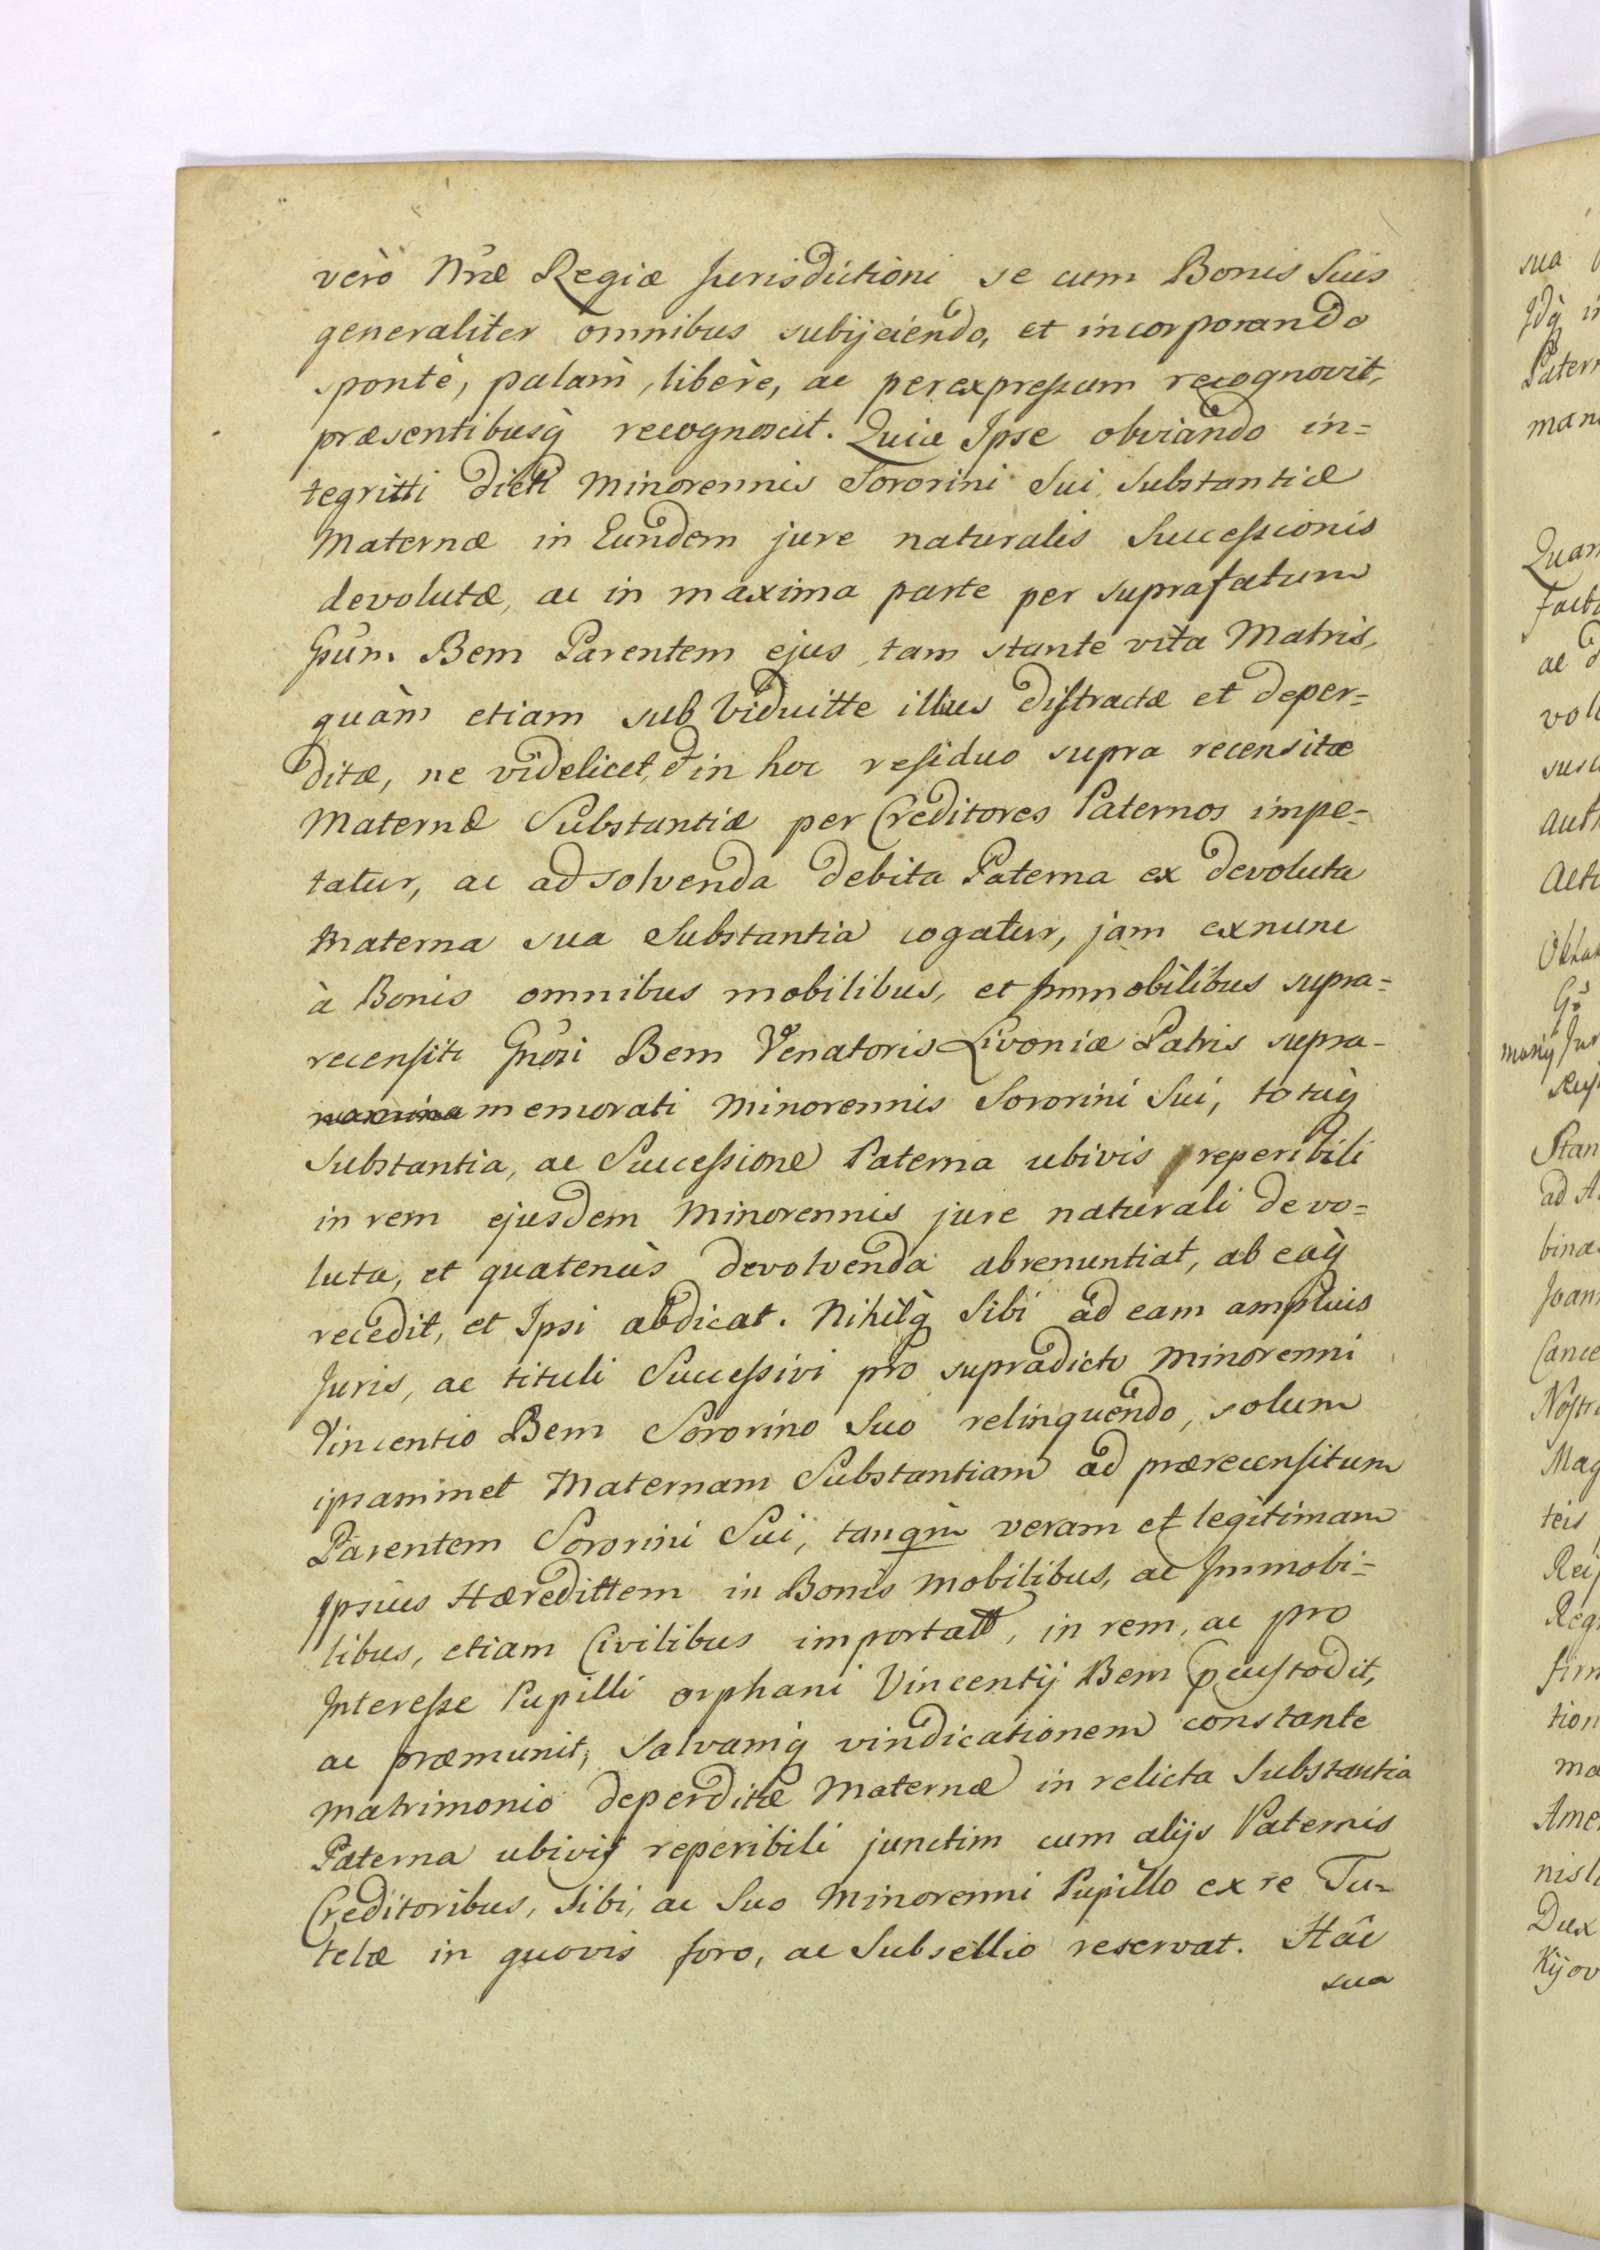 verò Nræ Regiæ Jurisdictioni se cum Bonis Suis
generaliter omnibus subijciendo, et incorporando
spontè, palàm, libère, ac perexpressum recognovit,
præsentibusq̀ recognoscit. Quia Ipse obviando in=
tegritti dicti Minorennis Sororini Sui Substantiæ
Maternæ in Eundem jure naturalis Successionis
devolutæ, ac in maxima parte per suprafatum
Gsum Bem Parentem ejus, tam stante vita Matris,
quàm etiam sub Viduitte illius distractæ et deper=
ditæ, ne videlicet, et in hoc residuo supra recensitæ
Maternæ Substantiæ per Creditores Paternos impe=
tatur, ac ad solvenda debita Paterna ex devoluta
Materna sua Substantia cogatur, jam exnunc
à Bonis omnibus mobilibus, et Immobilibus supra=
recensiti Gnosi Bem Venatoris Livoniæ Patris supra-
memorati Minorennis Sororini Sui, totaq̀
Substantia, ac Successione Paterna ubivis reperibili
in rem ejusdem Minorennis jure naturali devo=
luta, et quatenùs devolvenda abrenuntiat, ab eaq̀
recedit, et Ipsi abdicat. Nihilq̀ Sibi ad eam amplius
Juris, ac tituli Successivi pro supradicto Minorenni
Vincentio Bem Sororino Suo relinquendo, solum
ipsammet Maternam Substantiam ad prærecensitum
Parentem Sororini Sui, tanqm veram et legitimam
Ipsius Hæredittem in Bonis Mobilibus, ac Immobi=
libus, etiam Civilibus importatt, in rem, ac pro
Interesse Pupilli orphani Vincentij Bem pcustodit,
ac præmunit, Salvamq̀ vindicationem constante
matrimonio deperditæ Maternæ in relicta Substantia
Paterna ubivis reperibili junctim cum alijs Paternis
Creditoribus, Sibi, ac Suo Minorenni Pupillo ex re Tu=
telæ in quovis foro, ac Subsellio reservat. Hâc
sua
sua
Idq̀
Patern
Quam
ac
Nostr
Mag
teis
tion
ma
Dux
Kijov